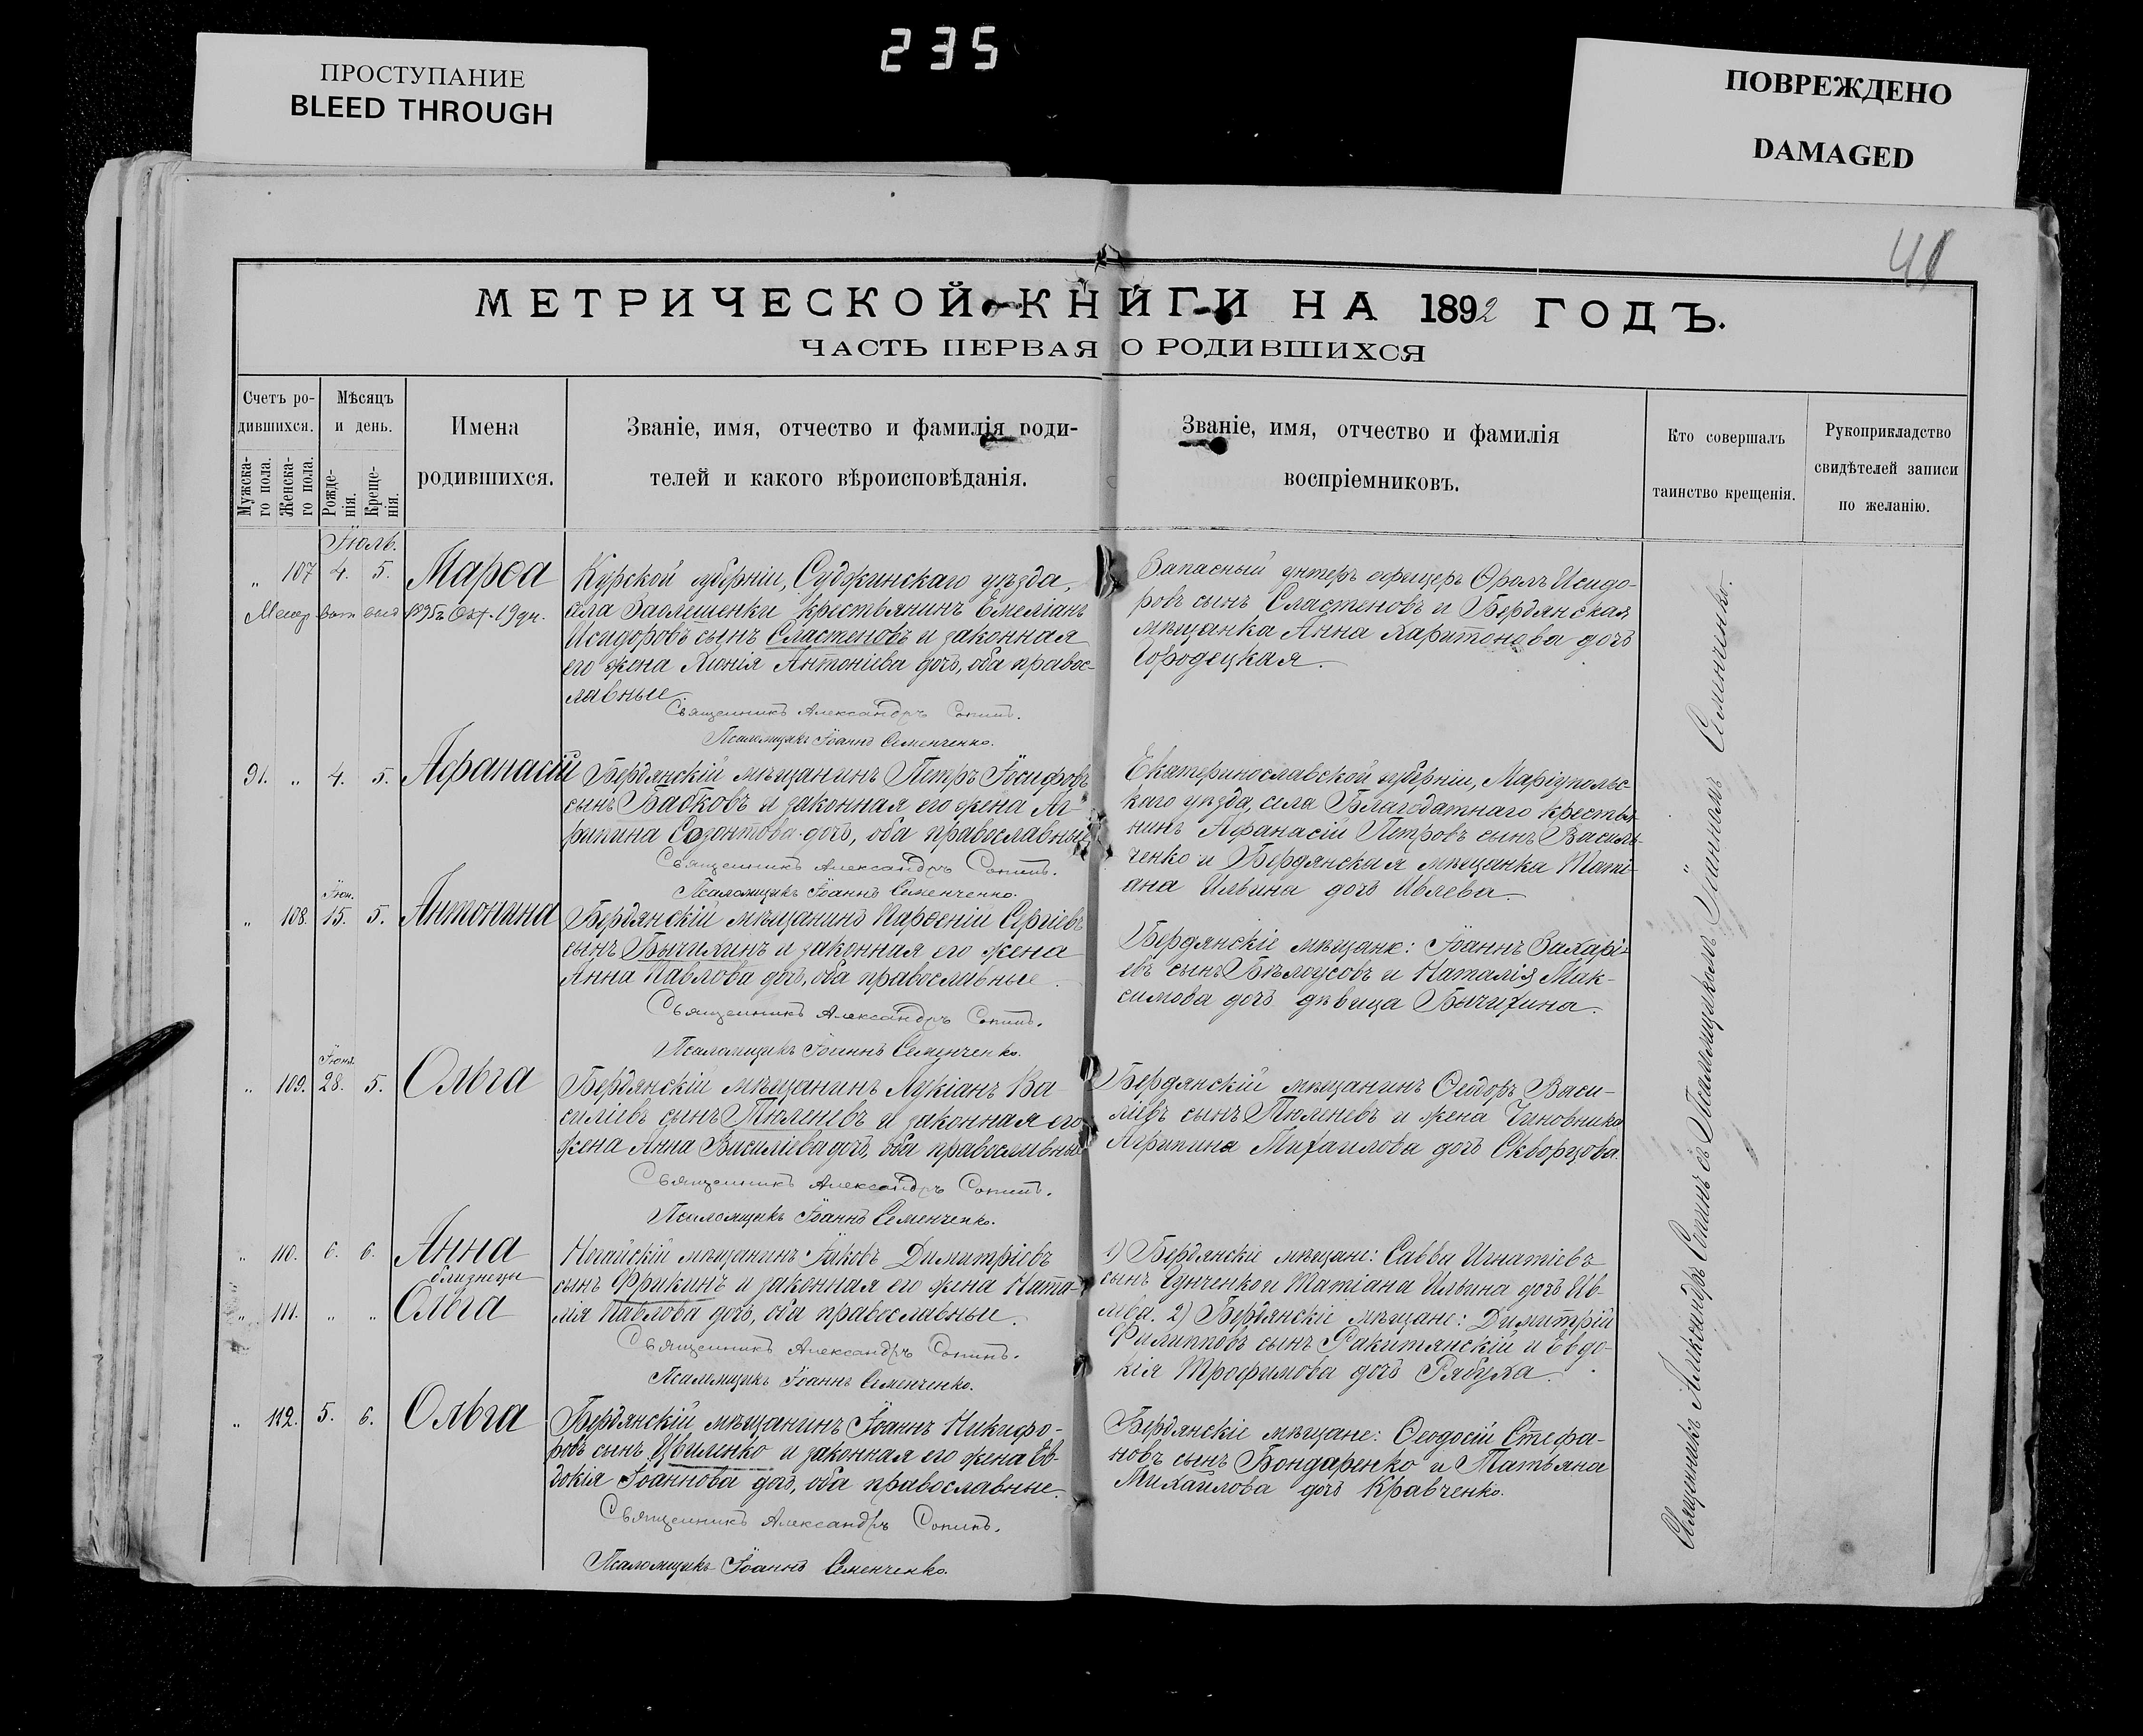 ПРОСТУПАНИЕ
BLEED THROUGH
235
ПОВРЕЖДЕНО
DAMAGED
41
МЕТРИЧЕСКОЙ КНИГИ НА 1892 ГОДЪ.
ЧАСТЬ ПЕРВАЯ О РОДИВШИХСЯ
Счетъ ро-
дившихся.
Мужска-
го пола.
Женска-
го пола.
Мѣсяцъ
и день.
Рожде-
нія.
Креще-
нія.
Имена
родившихся.
Званіе, имя, отчество и фамилія роди-
телей и какого вѣроисповѣданія.
Званіе, имя, отчество и фамилія
воспріемниковъ.
Кто совершалъ
таинство крещенія.
Рукоприкладство
свидѣтелей записи
по желанію.
Іюль.
„ 107 4. 5. Марѳа
1895 г. Окт. 19 дн.
Курской губерніи, Суджинскаго уѣзда,
села Заолешенки крестьянинъ Емеліанъ
Исидоровъ сынъ Сластеновъ и законная
его жена Хіонія Антоніева дочь, оба правос-
лавные.
Священникъ Александръ Сопинъ.
Псаломщикъ Іоаннъ Семенченко.
Запасный унтеръ офицеръ Ѳролъ Исидо-
ровъ сынъ Сластеновъ и Бердянская
мѣщанка Анна Харитонова дочь
Городецкая.
91. „ 4. 5. Афанасій
Бердянскій мѣщанинъ Петръ Іосифовъ
сынъ Бабковъ и законная его жена Аг-
рипина Созонтова дочь, оба православные
Священникъ Александръ Сопинъ.
Псаломщикъ Іоаннъ Семенченко.
Екатеринославской губерніи, Маріупольс-
каго уѣзда, села Благодатнаго крестья-
нинъ Афанасій Петровъ сынъ Василь-
ченко и Бердянская мѣщанка Тати-
ана Ильина дочь Ивлева.
Іюн.
„ 108. 15. 5. Антонина
Бердянскій мѣщанинъ Парѳеній Сергіевъ
сынъ Бычихинъ и законная его жена
Анна Павлова дочь, оба православные.
Священникъ Александръ Сопинъ.
Псаломщикъ Іоаннъ Семенченко.
Бердянскіе мѣщане: Іоаннъ Захарі-
евъ сынъ Бѣлоусовъ и Наталія Мак-
симова дочь дѣвица Бычихина.
Іюня
„ 109. 28. 5. Ольга
Бердянскій мѣщанинъ Лукіанъ Ва-
силіевъ сынъ Тюленевъ и законная его
жена Анна Василіева дочь, оба православные
Священникъ Александръ Сопинъ.
Псаломщикъ Іоаннъ Семенченко.
Бердянскій мѣщанинъ Ѳеодоръ Васи-
ліевъ сынъ Тюленевъ и жена Чиновника
Агрипина Михаилова дочь Скворцова.
„ 110. 6. 6. Анна
близнецы
„ 111. „ „ Ольга
Ногайскій мѣщанинъ Іаковъ Димитріевъ
сынъ Фрикинъ и законная его жена Ната-
лія Павлова дочь, оба православные.
Священникъ Александръ Сопинъ.
Псаломщикъ Іоаннъ Семенченко.
1) Бердянскіе мѣщане: Савва Игнатіевъ
сынъ и Татіана Ильина дочь Ив-
лева. 2) Бердянскіе мѣщане: Димитрій
Филипповъ сынъ Ракитянскій и Евдо-
кія Трофимова дочь Рябуха.
„ 112. 5. 6. Ольга
Бердянскій мѣщанинъ Іоаннъ Никифо-
ровъ сынъ Цвиленко и законная его жена Ев-
докія Іоаннова дочь, оба православные.
Священникъ Александръ Сопинъ.
Псаломщикъ Іоаннъ Семенченко.
Бердянскіе мѣщане: Ѳеодосій Стефа-
новъ сынъ Бондаренко и Татьяна
Михаилова дочь Кравченко.
Священникъ Александръ Сопинъ съ Псаломщикомъ Іоанномъ Семенченко.